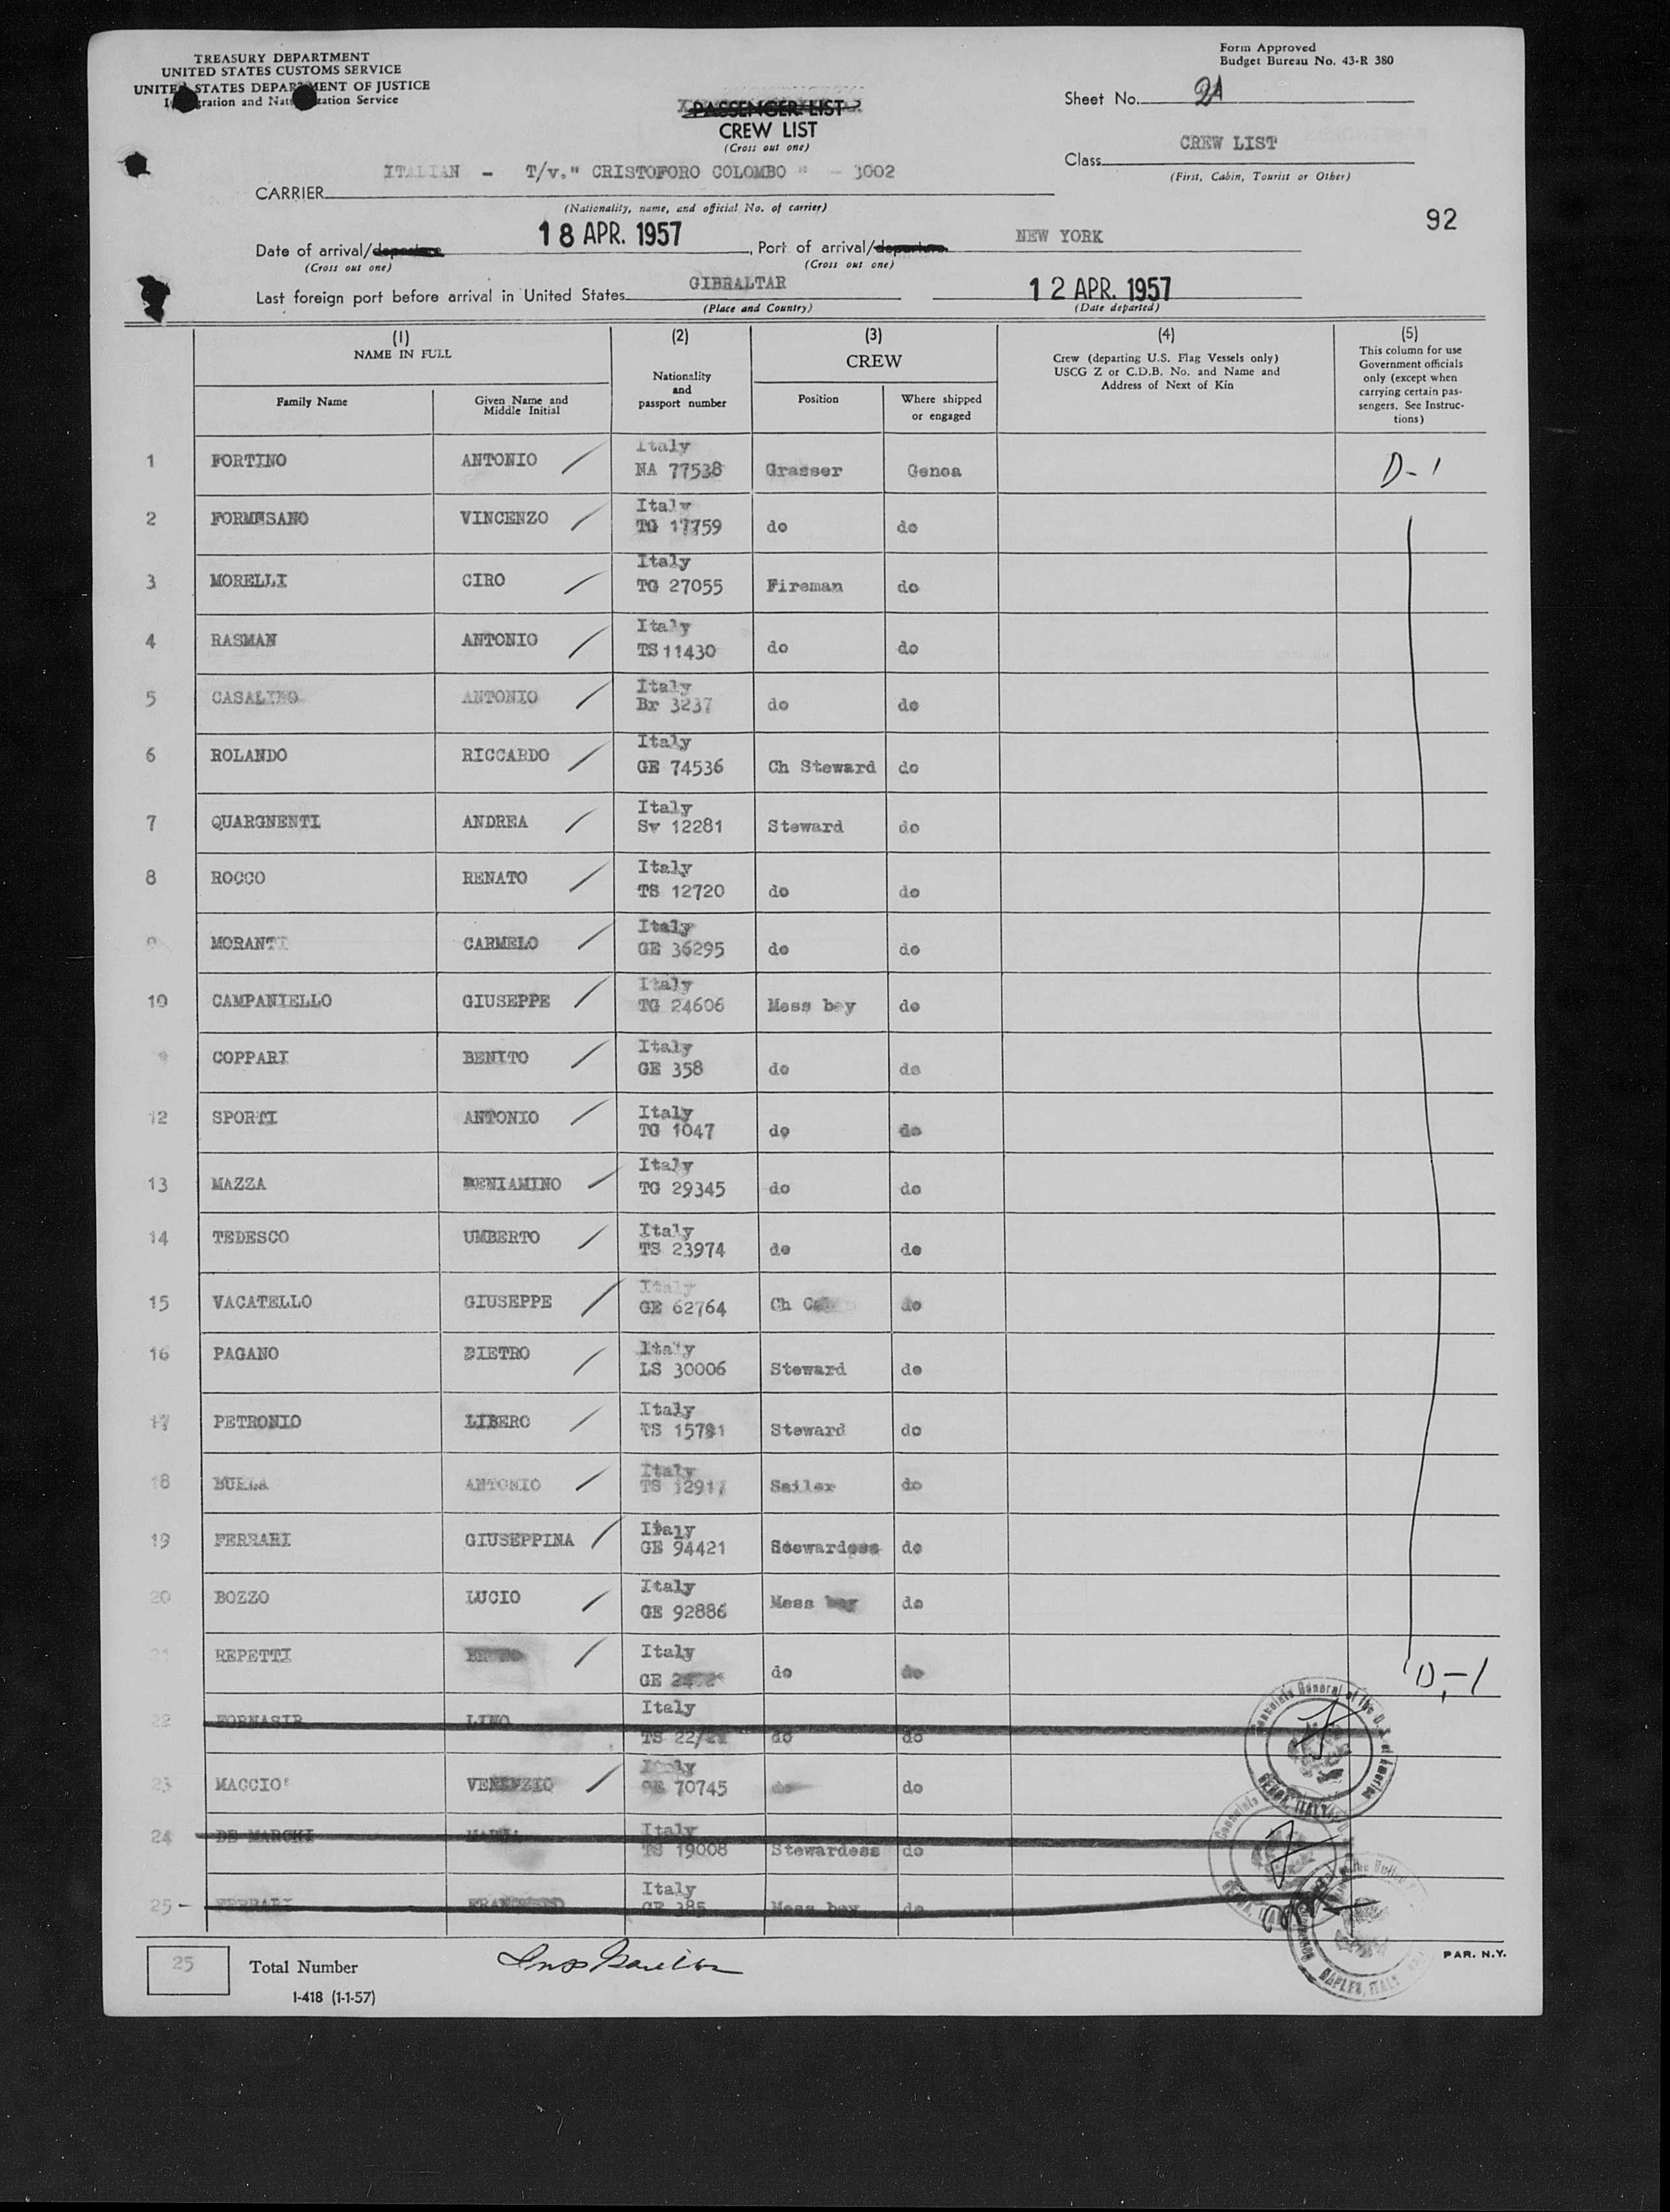 TREASURY DEPARTMENT
UNITED STATES CUSTOMS SERVICE
UNITED STATES DEPARTMENT OF JUSTICE
Immigration and Naturalization Service
Form Approved
Budget Bureau No. 43-R 380
Sheet No. 21
PASSENGER LIST
CREW LIST
(Cross out one)
Class CREW LIST
(First, Cabin, Tourist or Other)
CARRIER ITALIAN - T/v." CRISTOFORO COLOMBO " - 3002
(Nationality, name, and official No. of carrier)
92
Date of arrival/departure 18 APR. 1957, Port of arrival/departure NEW YORK
(Cross out one) (Cross out one)
Last foreign port before arrival in United States GIBRALTAR 12 APR. 1957
(Place and Country) (Date departed)
(1) NAME IN FULL
Family Name
Given Name and Middle Initial
(2) Nationality and passport number
(3) CREW
Position
Where shipped or engaged
(4) Crew (departing U.S. Flag Vessels only) USCG Z or C.D.B. No. and Name and Address of Next of Kin
(5) This column for use Government officials only (except when carrying certain passengers. See Instructions)
1 FORTINO ANTONIO Italy NA 77538 Grasser Genoa D-1
2 FORMESANO VINCENZO Italy TG 17759 do do
3 MORELLI CIRO Italy TG 27055 Fireman do
4 RASMAN ANTONIO Italy TS 11430 do do
5 CASALINO ANTONIO Italy Br 3237 do do
6 ROLANDO RICCARDO Italy GE 74536 Ch Steward do
7 QUARGNENTI ANDREA Italy Sv 12281 Steward do
8 ROCCO RENATO Italy TS 12720 do do
9 MORANTI CARMELO Italy GE 36295 do do
10 CAMPANIELLO GIUSEPPE Italy TG 24606 Mess boy do
COPPARI BENITO Italy GE 358 do do
12 SPORTI ANTONIO Italy TG 1047 do do
13 MAZZA BENIAMINO Italy TG 29345 do do
14 TEDESCO UMBERTO Italy TS 23974 do do
15 VACATELLO GIUSEPPE Italy GE 62764 Ch do
16 PAGANO PIETRO Italy LS 30006 Steward do
17 PETRONIO LIBERO Italy TS Steward do
18 ANTONIO Italy TS Sailor do
19 FERRARI GIUSEPPINA Italy GE 94421 Stewardess do
20 BOZZO LUCIO Italy GE 92886 Mess boy do
21 REPETTI Italy GE do do D-1
22 FORNASIR LINO Italy TS do do
23 MACCIO' Italy GE 70745 do do
24 DE MARCHI MARIA Italy TS 19008 Stewardess do
25 - FERRARI FRANCESCO Italy GE 385 Mess boy do
Consulate General of the U.S. of America
GENOA, ITALY
Consulate
GENOA, ITALY
NAPLES, ITALY
25
Total Number
I-418 (1-1-57)
PAR. N.Y.